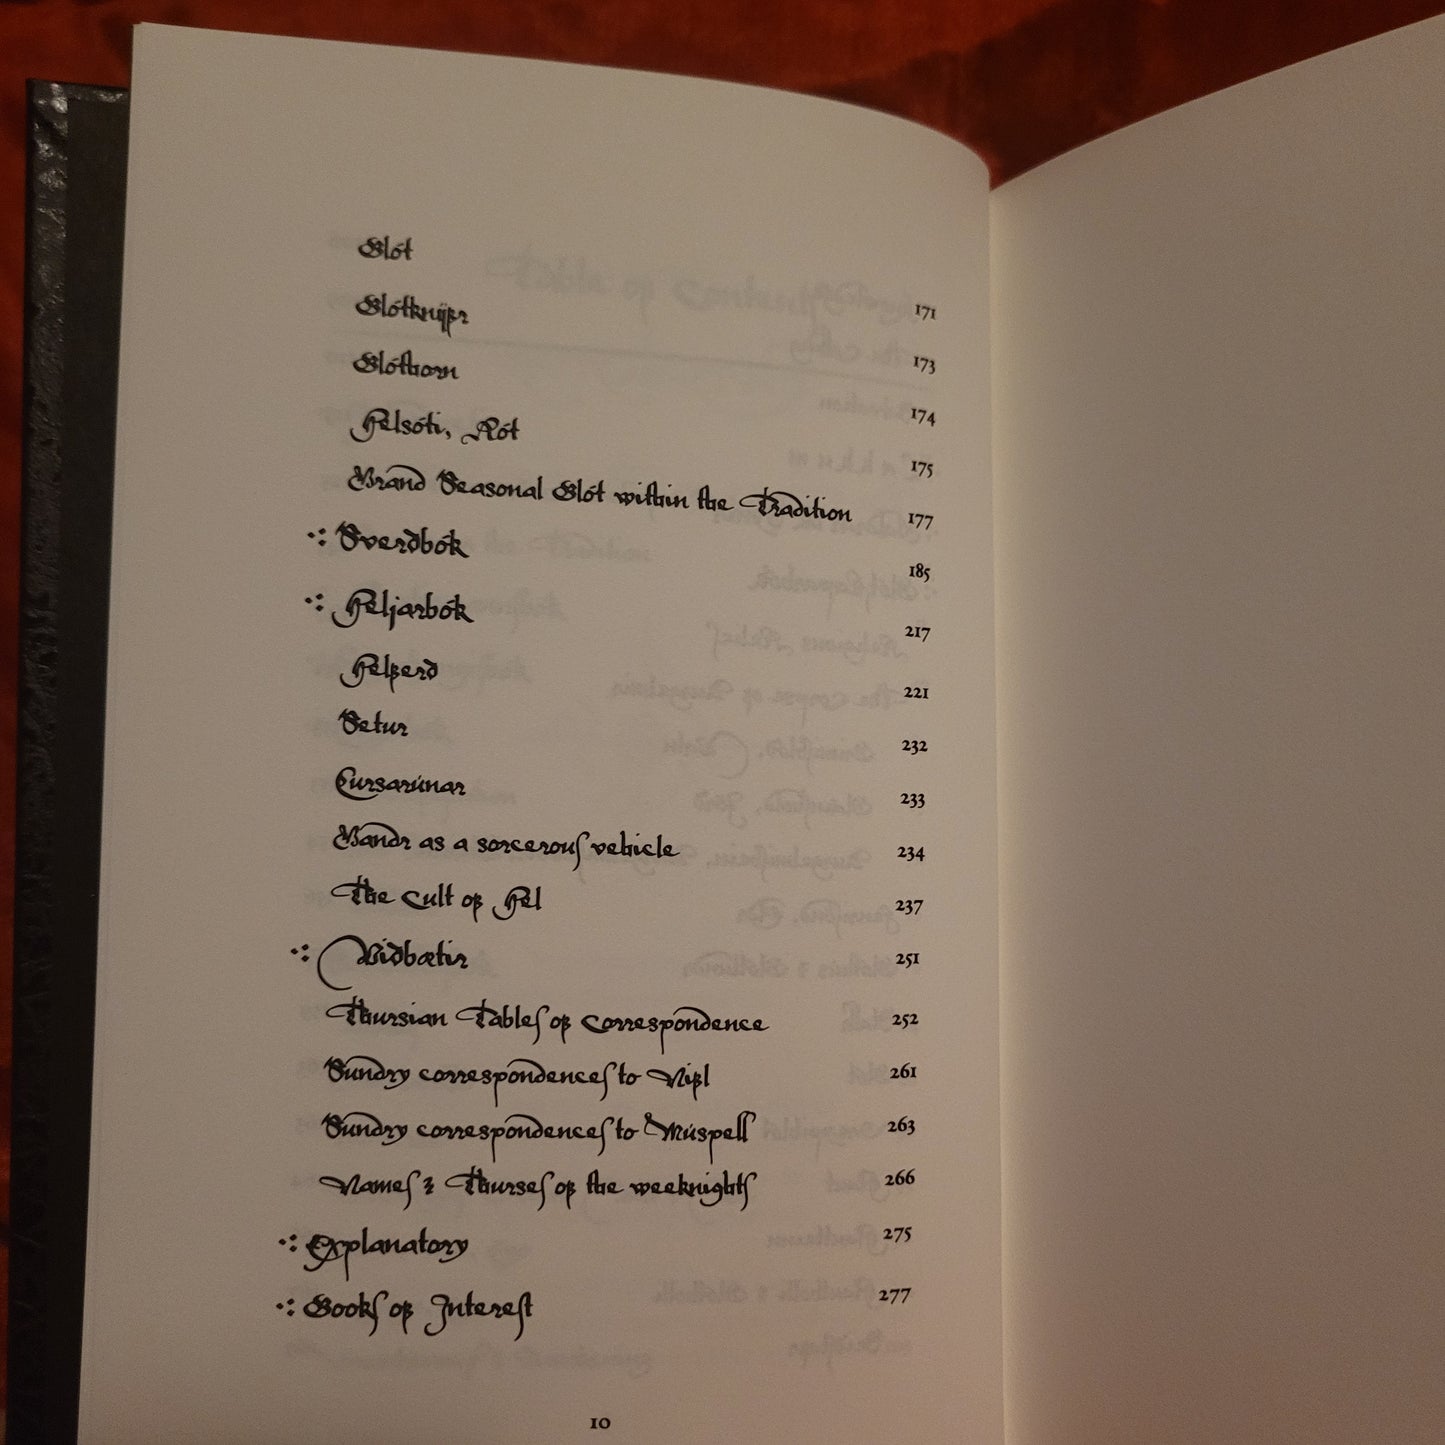 Blót 171
Blótknífr 173
Blóthorn 174
Helsóti, Rót 175
Grand Seasonal Blót within the Tradition 177
⁖ Sverðbók 185
⁖ Heljarbók 217
Helferð 221
Setur 232
Þursarúnar 233
Gandr as a sorcerous vehicle 234
The Cult of Hel 237
⁖ Viðbætir 251
Thursian Tables of Correspondence 252
Sundry correspondences to Nifl 261
Sundry correspondences to Múspell 263
Names & Thurses of the weeknights 266
⁖ Explanatory 275
⁖ Books of Interest 277
10